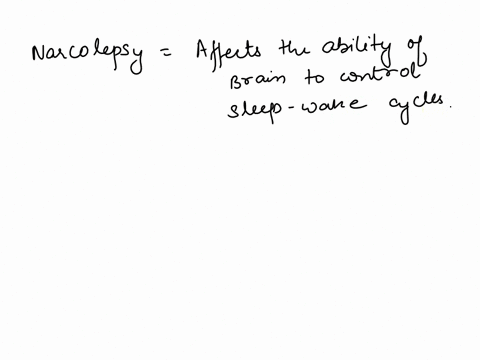 Narcolepsy = Affects the ability of
Brain to control
sleep-wake cycles.